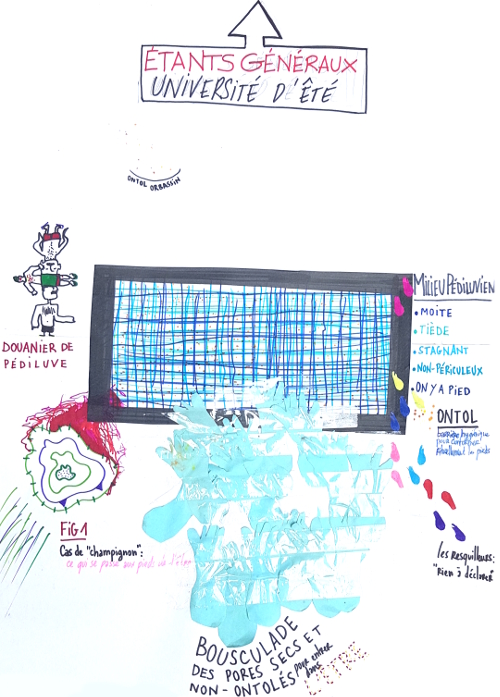 ÉTANTS GÉNÉRAUX
UNIVERSITÉ D'ÉTÉ
ONTOL ORBASSIN
DOUANIER DE
PÉDILUVE
MILIEU PÉDILUVIEN
• MOITE
• TIÈDE
• STAGNANT
• NON-PÉRICULEUX
• ON Y A PIED
ONTOL
barrière hygiénique
pour
les pieds
FIG 1
Cas de "champignon":
ce qui se passe aux pieds de l'
les resquilleurs:
"Rien à déclarer"
BOUSCULADE
DES PORES SECS ET
NON-ONTOLÉS pour entrer
dans
L'ÊTRE